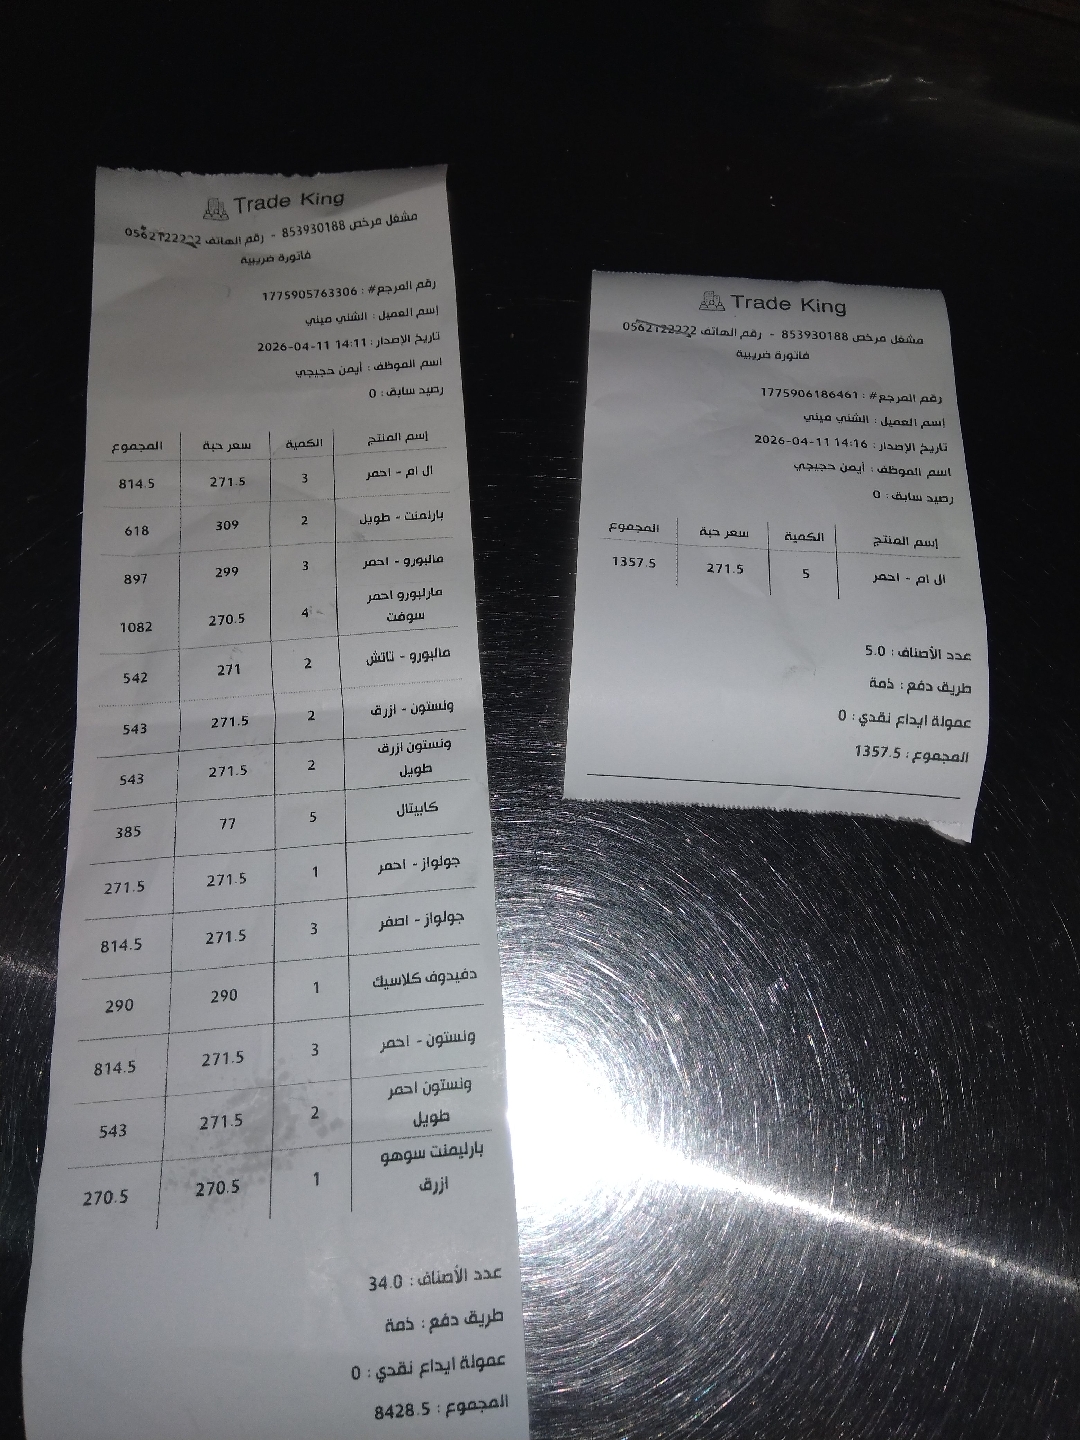 Trade King
مشغل مرخص 853930188 - رقم الهاتف 0562122222
فاتورة ضريبية
رقم المرجع# : 1775905763306
إسم العميل : الشني ميني
تاريخ الإصدار : 14:11 11-04-2026
اسم الموظف : أيمن حجيجي
رصيد سابق : 0
إسم المنتج الكمية سعر حبة المجموع
ال ام - احمر 3 271.5 814.5
بارلمنت - طويل 2 309 618
مالبورو - احمر 3 299 897
مارلبورو احمر
سوفت 4 270.5 1082
مالبورو - تاتش 2 271 542
ونستون - ازرق 2 271.5 543
ونستون ازرق
طويل 2 271.5 543
كابيتال 5 77 385
جولواز - احمر 1 271.5 271.5
جولواز - اصفر 3 271.5 814.5
دفيدوف كلاسيك 1 290 290
ونستون - احمر 3 271.5 814.5
ونستون احمر
طويل 2 271.5 543
بارليمنت سوهو
ازرق 1 270.5 270.5
عدد الأصناف : 34.0
طريق دفع : ذمة
عمولة ايداع نقدي : 0
المجموع : 8428.5
Trade King
مشغل مرخص 853930188 - رقم الهاتف 0562122222
فاتورة ضريبية
رقم المرجع# : 1775906186461
إسم العميل : الشني ميني
تاريخ الإصدار : 14:16 11-04-2026
اسم الموظف : أيمن حجيجي
رصيد سابق : 0
إسم المنتج الكمية سعر حبة المجموع
ال ام - احمر 5 271.5 1357.5
عدد الأصناف : 5.0
طريق دفع : ذمة
عمولة ايداع نقدي : 0
المجموع : 1357.5